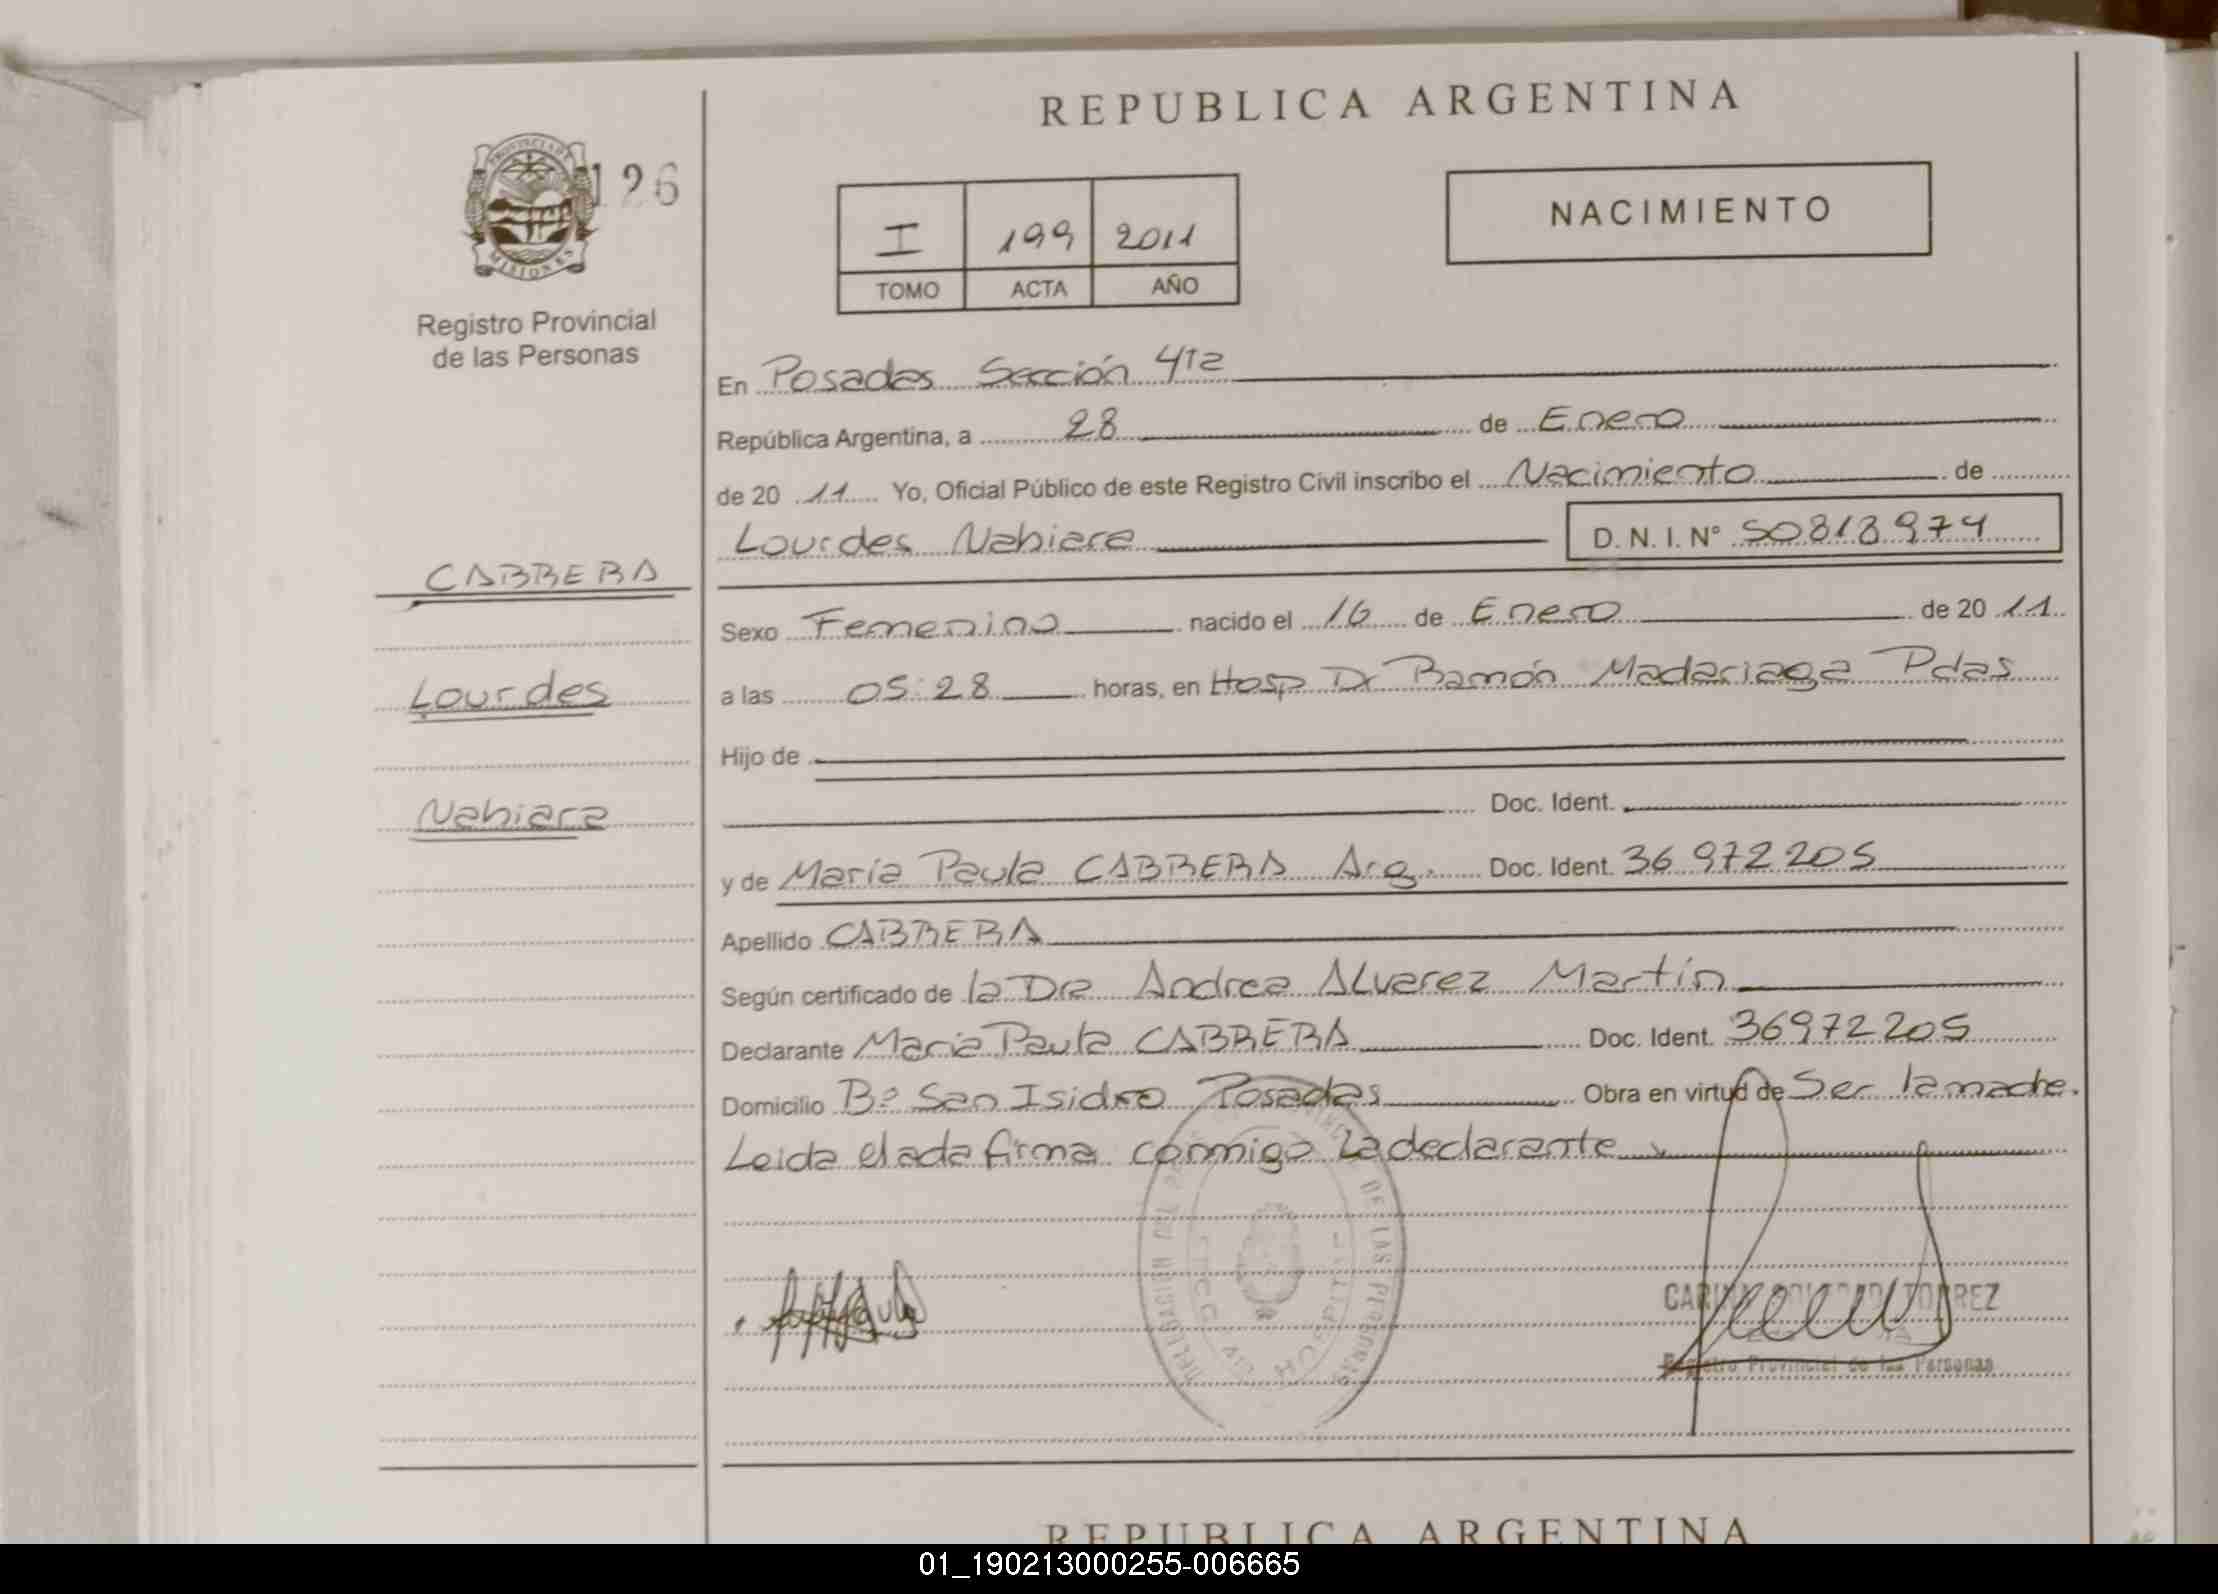 REPUBLICA ARGENTINA
PROVINCIA DE
MISIONES
126
Registro Provincial
de las Personas
I 199 2011
TOMO ACTA AÑO
NACIMIENTO
En Posadas Sección 4ta
República Argentina, a 28 de Enero
de 20 11 Yo, Oficial Público de este Registro Civil inscribo el Nacimiento de
Lourdes Nahiara D. N. I. Nº 50818974
CABRERA
Lourdes
Nahiara
Sexo Femenino nacido el 16 de Enero de 20 11
a las 05:28 horas, en Hosp Dr Ramón Madariaga Pdas
Hijo de
Doc. Ident.
y de María Paula CABRERA Arg. Doc. Ident. 36 972 205
Apellido CABRERA
Según certificado de la Dra Andrea Alvarez Martín
Declarante María Paula CABRERA Doc. Ident. 36972205
Domicilio Bº San Isidro Posadas Obra en virtud de Ser la madre.
Leida el acta firma conmigo la declarante
DELEGACION DEL DE LAS PERSONAS
HOSPITAL
TORREZ
Registro Provincial de las Personas
REPUBLICA ARGENTINA
01_190213000255-006665